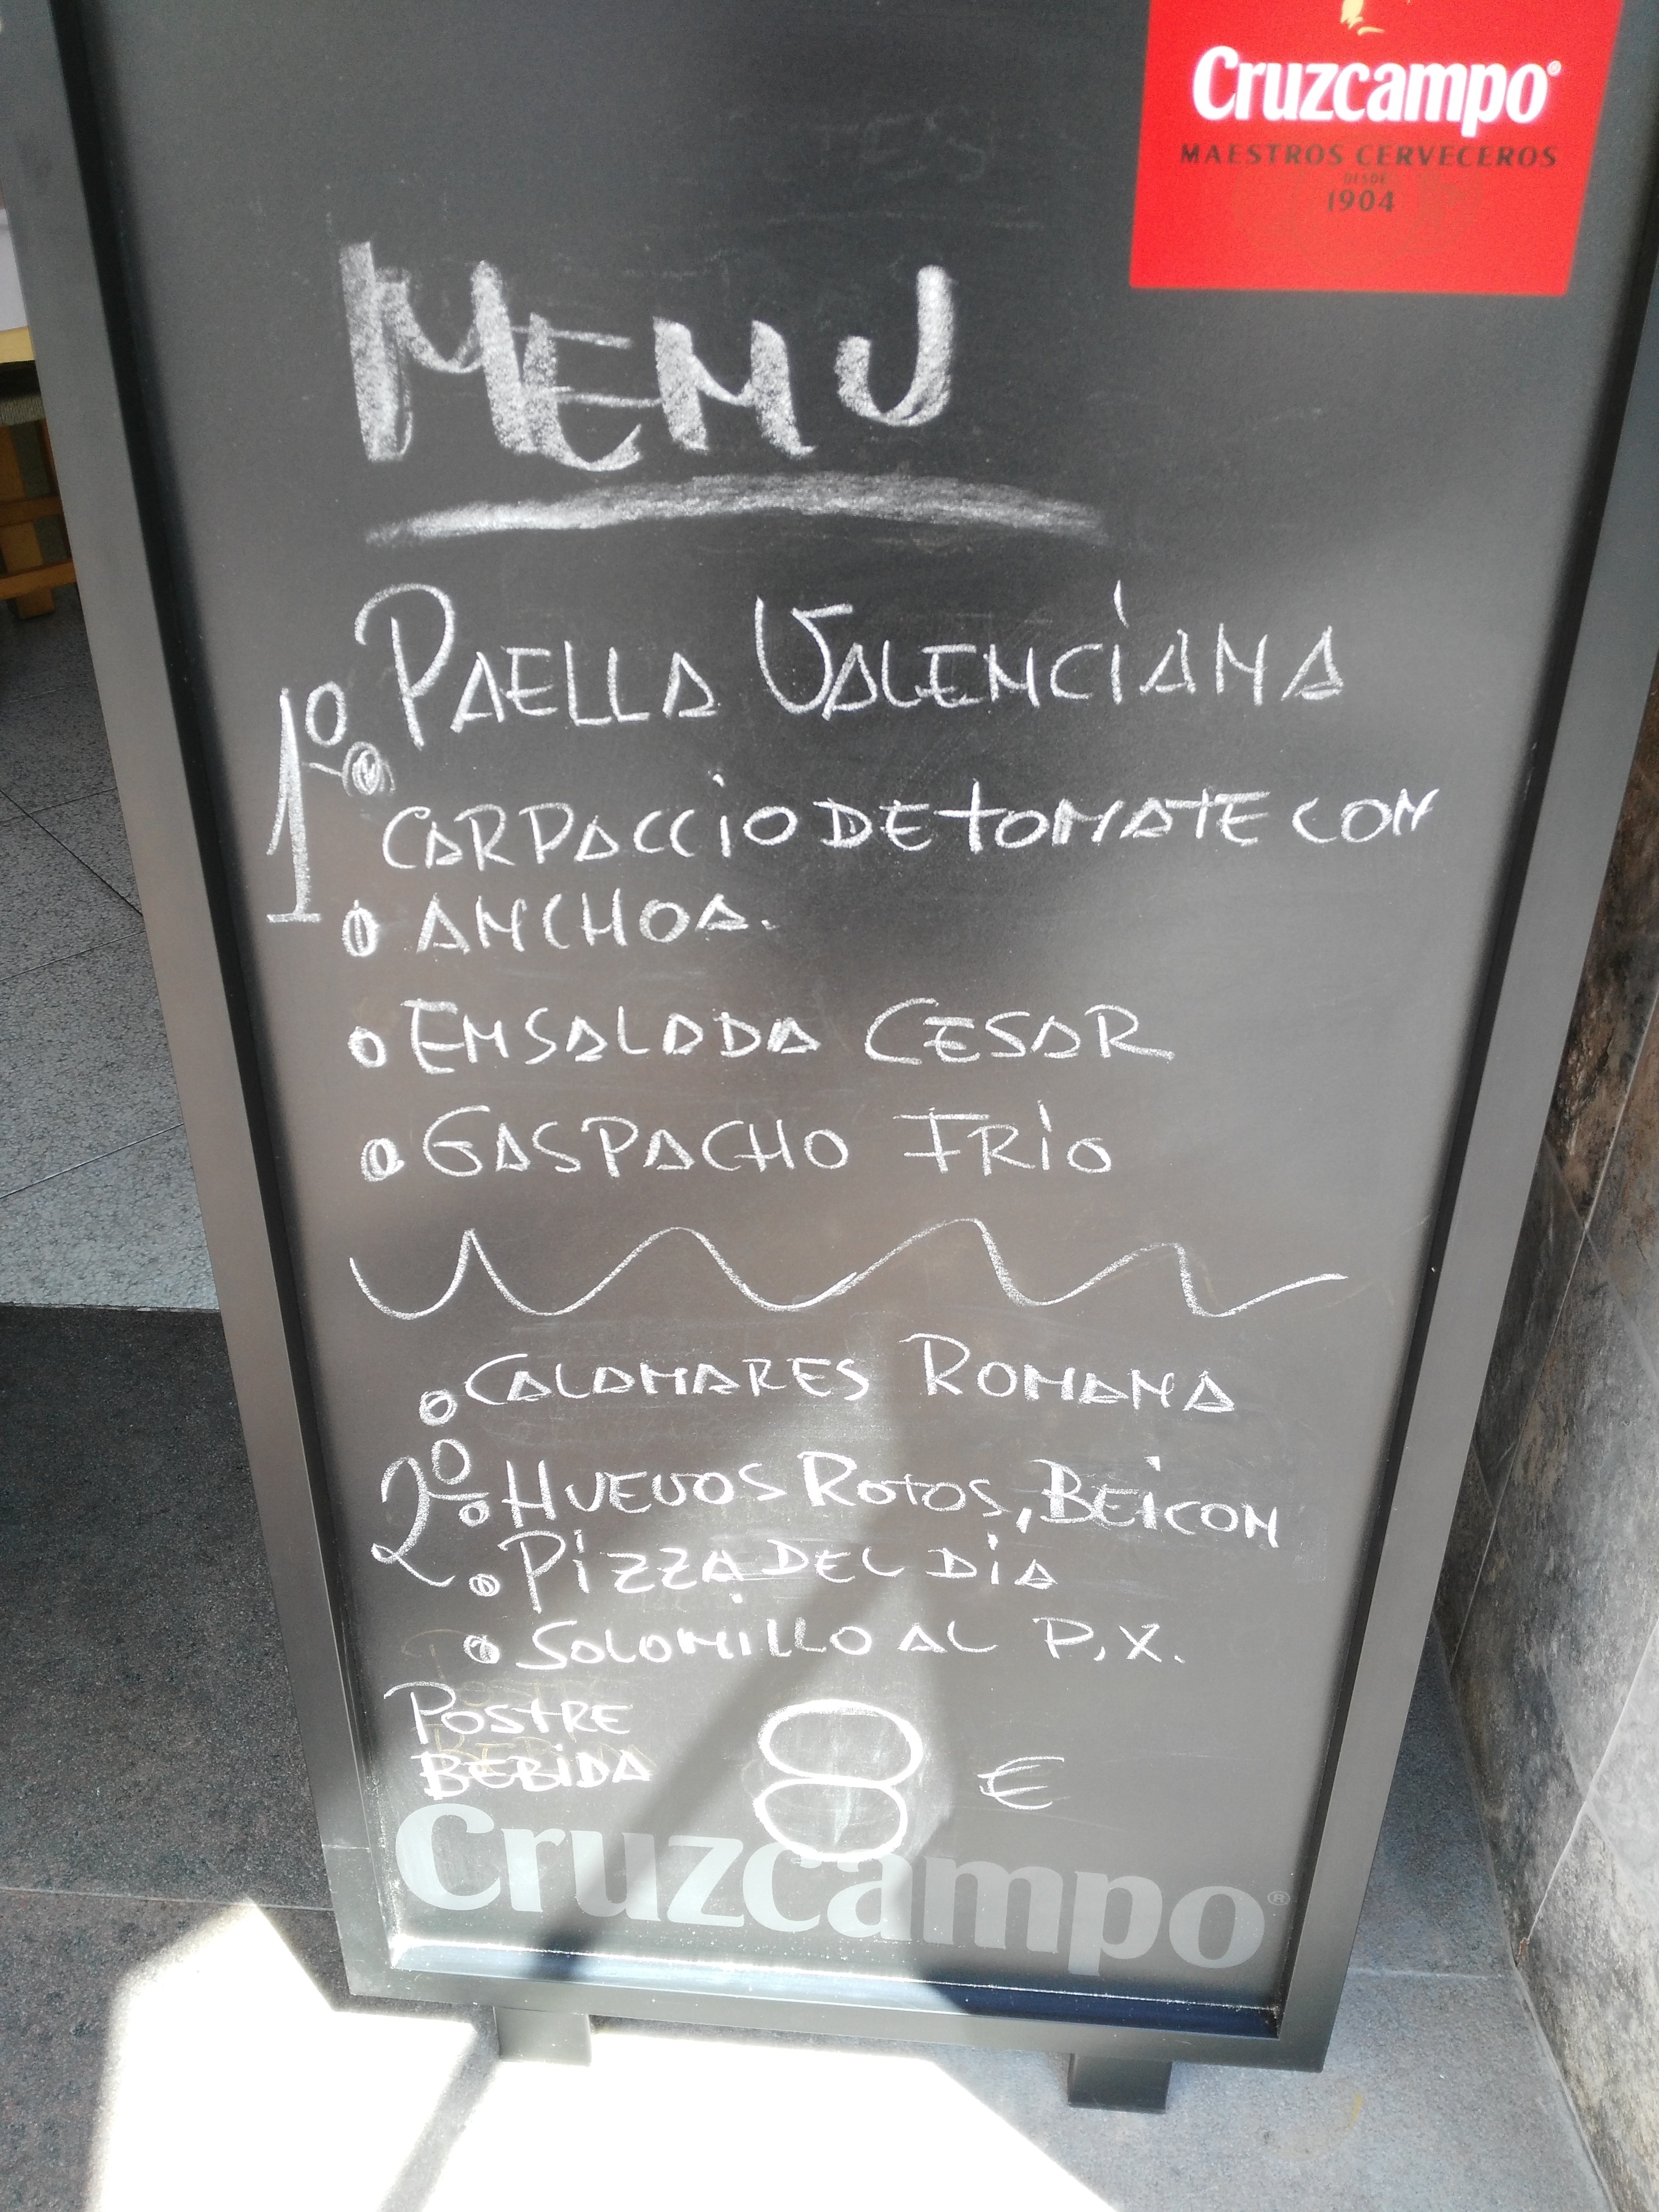 Cruzcampo®
MAESTROS CERVECEROS
DESDE
1904
MENU
1º
PAELLA VALENCIANA
CARPACCIO DE TOMATE CON
ANCHOA.
ENSALADA CESAR
GASPACHO FRIO
CALAMARES ROMANA
2º
HUEVOS ROTOS, BEICON
PIZZA DEL DIA
SOLOMILLO AL P.X.
POSTRE
BEBIDA
8 €
Cruzcampo®